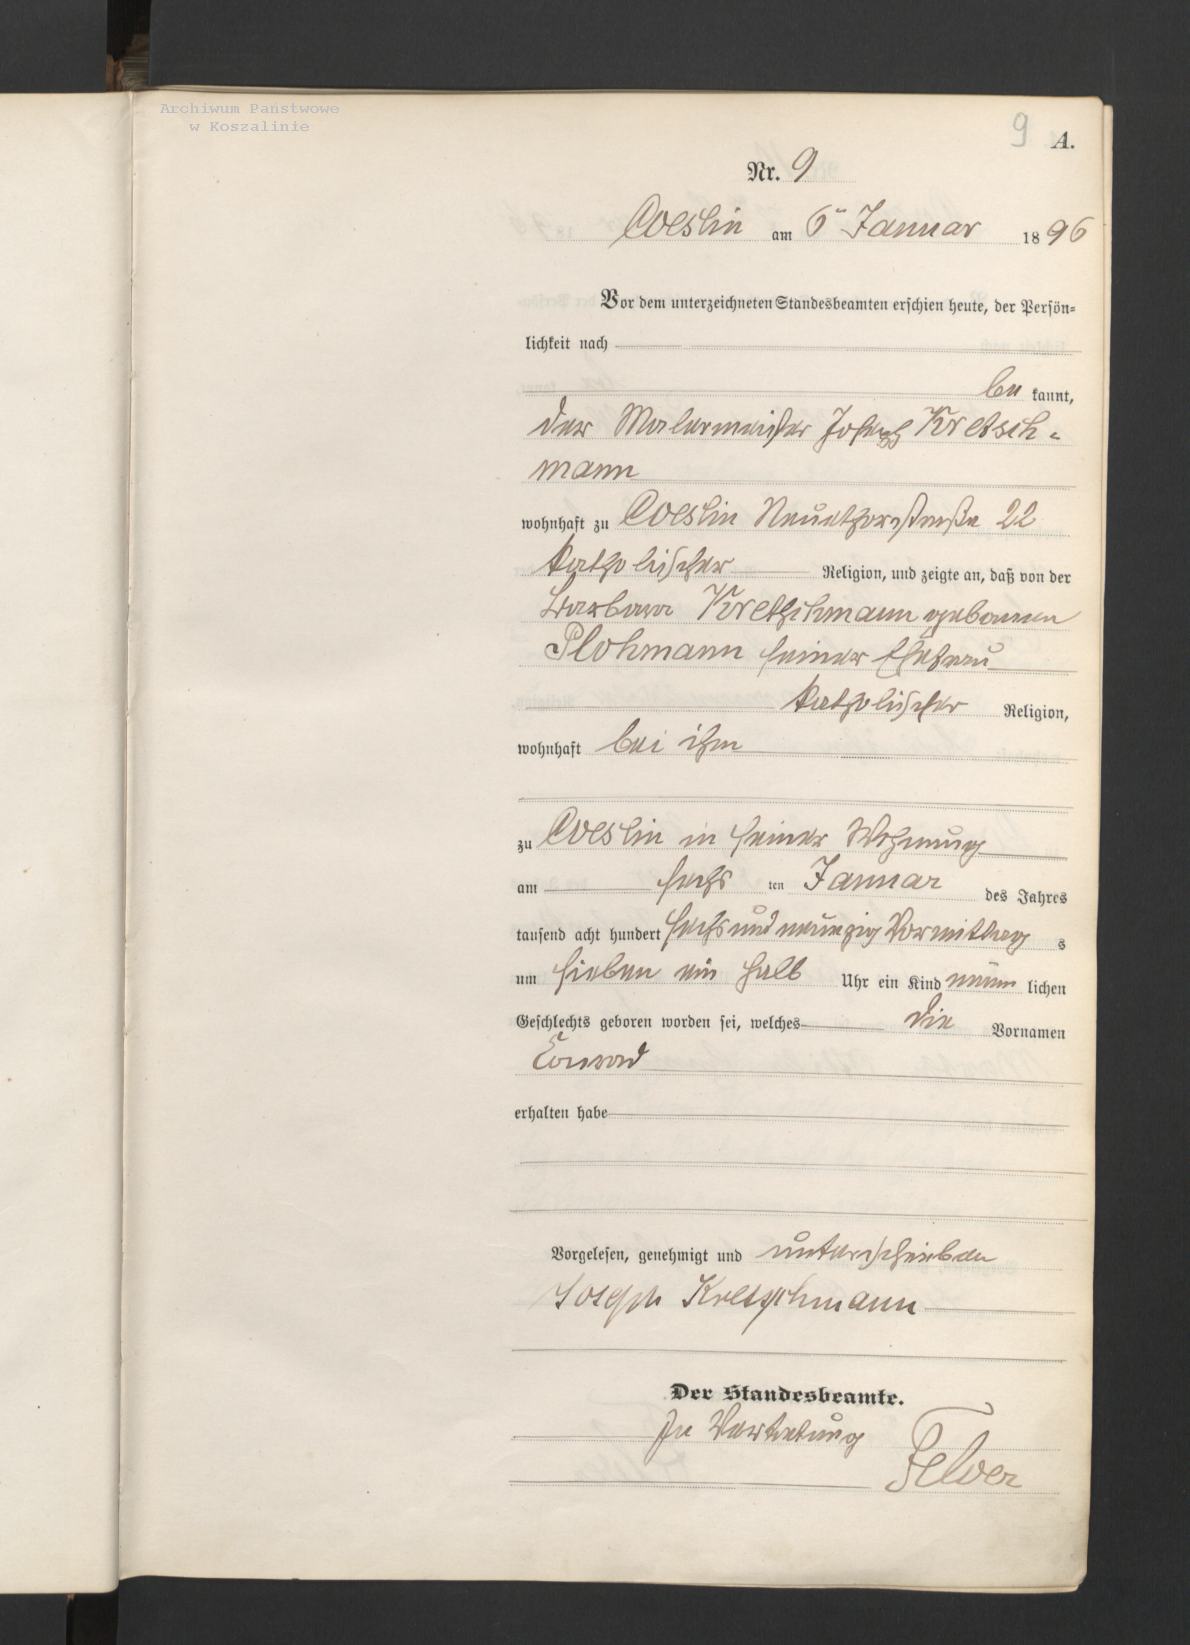 Archiwum Państwowe
w Koszalinie
9 A.
Nr. 9
Coeslin am 6ten Januar 1896
Vor dem unterzeichneten Standesbeamten erschien heute, der Persön-
lichkeit nach
be kannt,
der Malermeister Joseph Kretsch-
mann
wohnhaft zu Coeslin Neuethorstraße 22
katholischer Religion, und zeigte an, daß von der
Barbara Kretschmann geborenen
Plohmann seiner Ehefrau
katholischer Religion,
wohnhaft bei ihm
zu Coeslin in seiner Wohnung
am sechs ten Januar des Jahres
tausend acht hundert sechs und neunzig Vormittag s
um sieben ein halb Uhr ein Kind männ lichen
Geschlechts geboren worden sei, welches die Vornamen
Conrad
erhalten habe
Vorgelesen, genehmigt und unterschrieben
Joseph Kretschmann
Der Standesbeamte.
In Vertretung